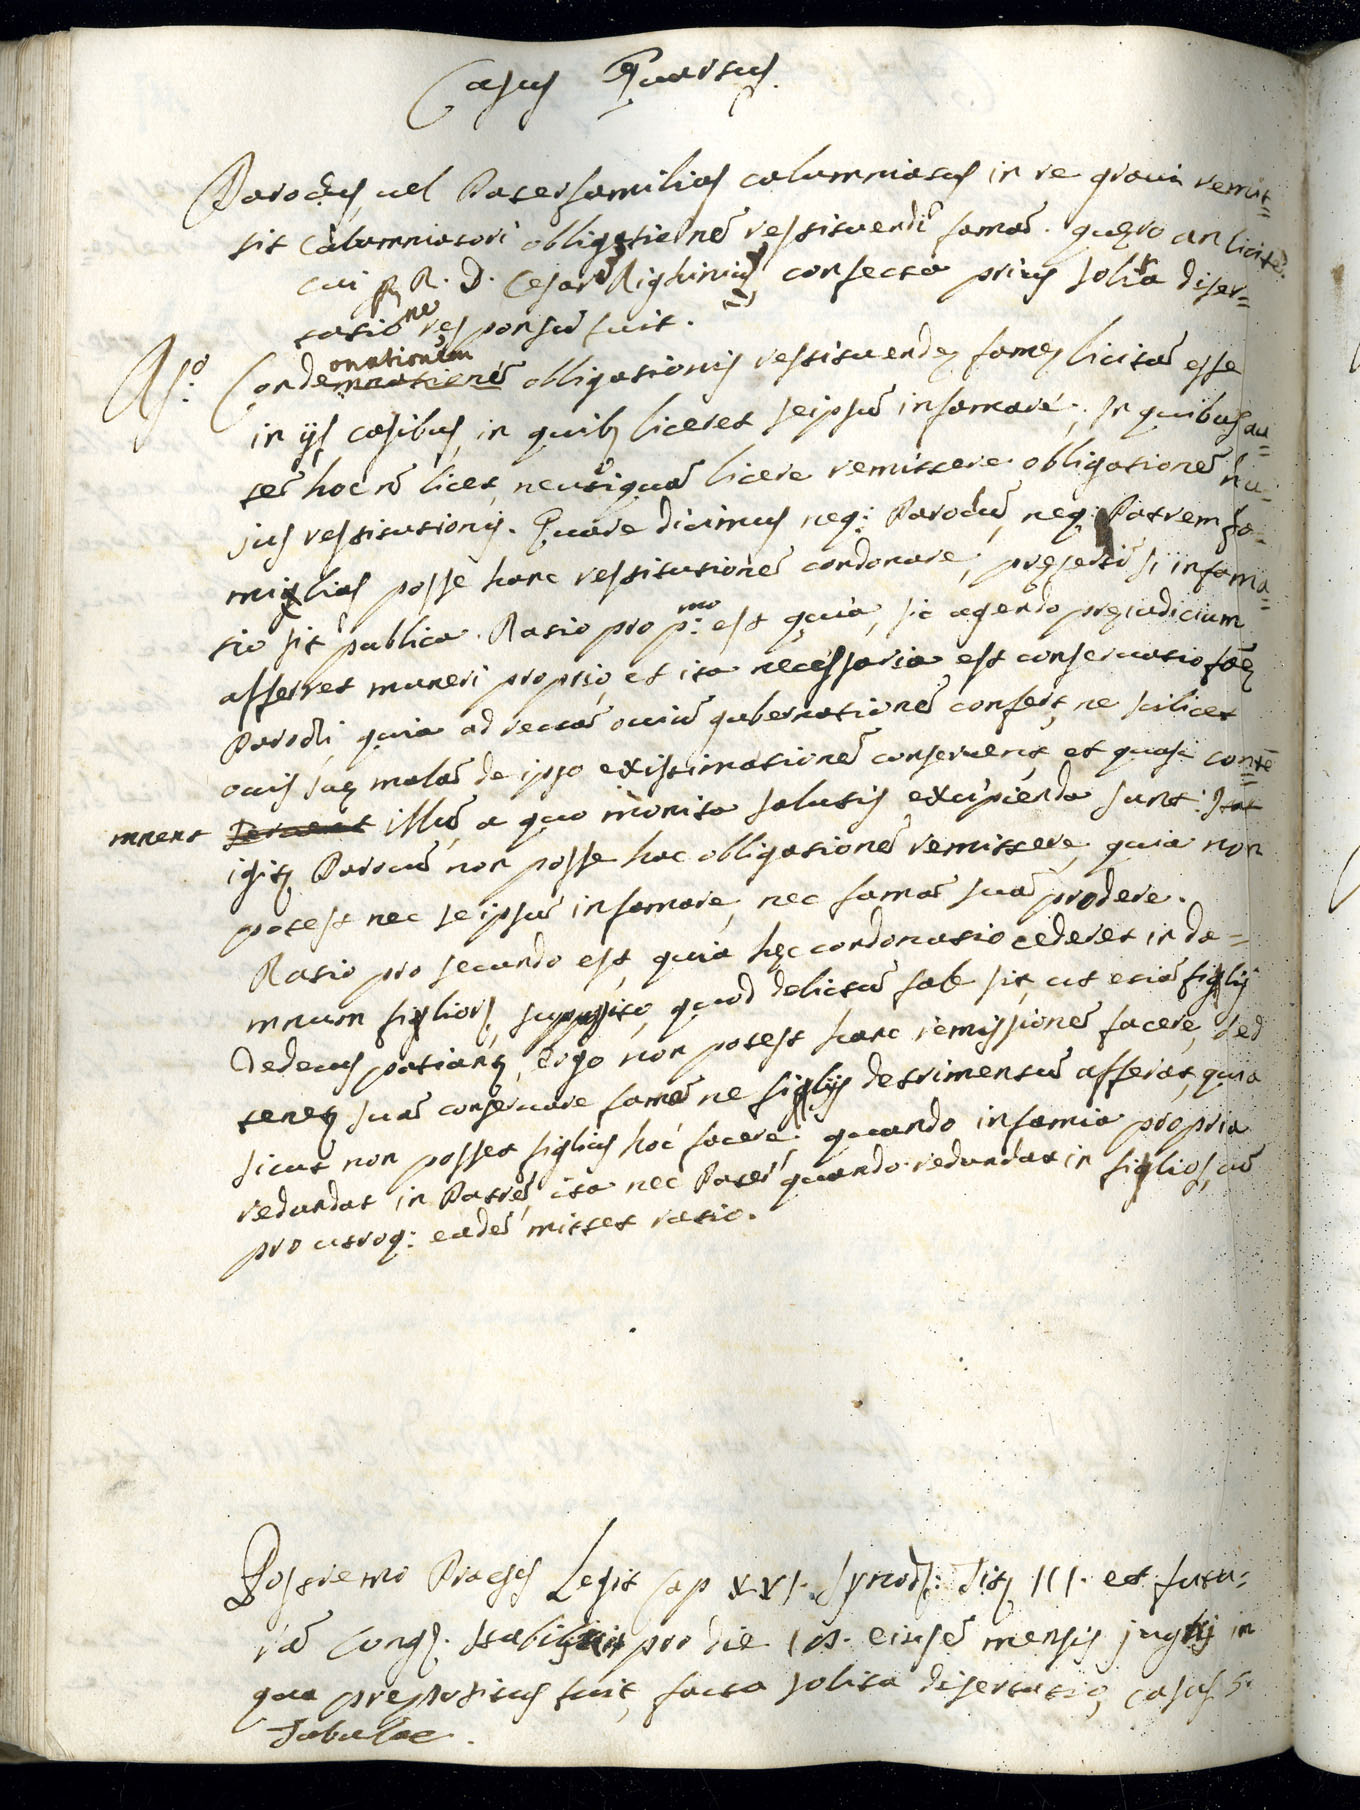 Casus Quartus
Parochus, uel Paterfamilias calumniatus in re graui remit=
tit calumniatori obligationẽ restituendi famã. quęro an licitè.
cui P. R. D. Cesar Righinius, confecta prius solita diser=
tatione responsũ fuit.
Rs.º Condonationem obligationis restituendę famę licitã esse
in ijs casibus, in quibȝ liceret seipsũ infamare. In quibus au=
tẽ hoc nõ licet, neutiquã licere remittere obligationẽ hu=
jus restitutionis. Quare dicimus neq: Parochũ, neq: Patrem fa=
miglias posse hanc restitutionẽ condonare, pręsertĩ si infama=
tio sit publica. Ratio pro p.mo est quia, sic agendo pręiudicium
afferret muneri proprio, et ita necessaria est conseruatio famę
Parochi, quia ad rectã ouiũ gubernationẽ confert, ne scilicet
ouis suę malã de ipso existimationẽ conseruent, et quasi contẽ=
mnent seruent illũ, a quo monita salutis excipienda sunt. Stat
igitȝ Parocũ non posse hãc obligationẽ remittere, quia non
potest nec seipsũ infamare, nec famã suã prodere.
Ratio pro secundo est, quia hęc condonatio cederet in da=
mnum figliorȝ, supposito, quod delictũ tale sit, ut etiã figlij
dedecus patiantȝ, ergo non potest hanc remissionẽ facere, sed
tenetȝ suã conseruare famã ne figlijs detrimentũ afferat, quia
sicut non posset figlius hoc facere, quando infamia propria
redundat in Patrẽ, ita nec Pater quando redundat in figlios, cũ
pro utroq: eadẽ mittet ratio.
Postremo Praeses Legit Cap XVI. Synodȝ: Titȝ III. et futu=
rã Congȝ. stabiliuit pro die 18. eiusdẽ mensis juglij in
qua prepositus fuit, facta solita disertatio, casus 5.
Tabulae.